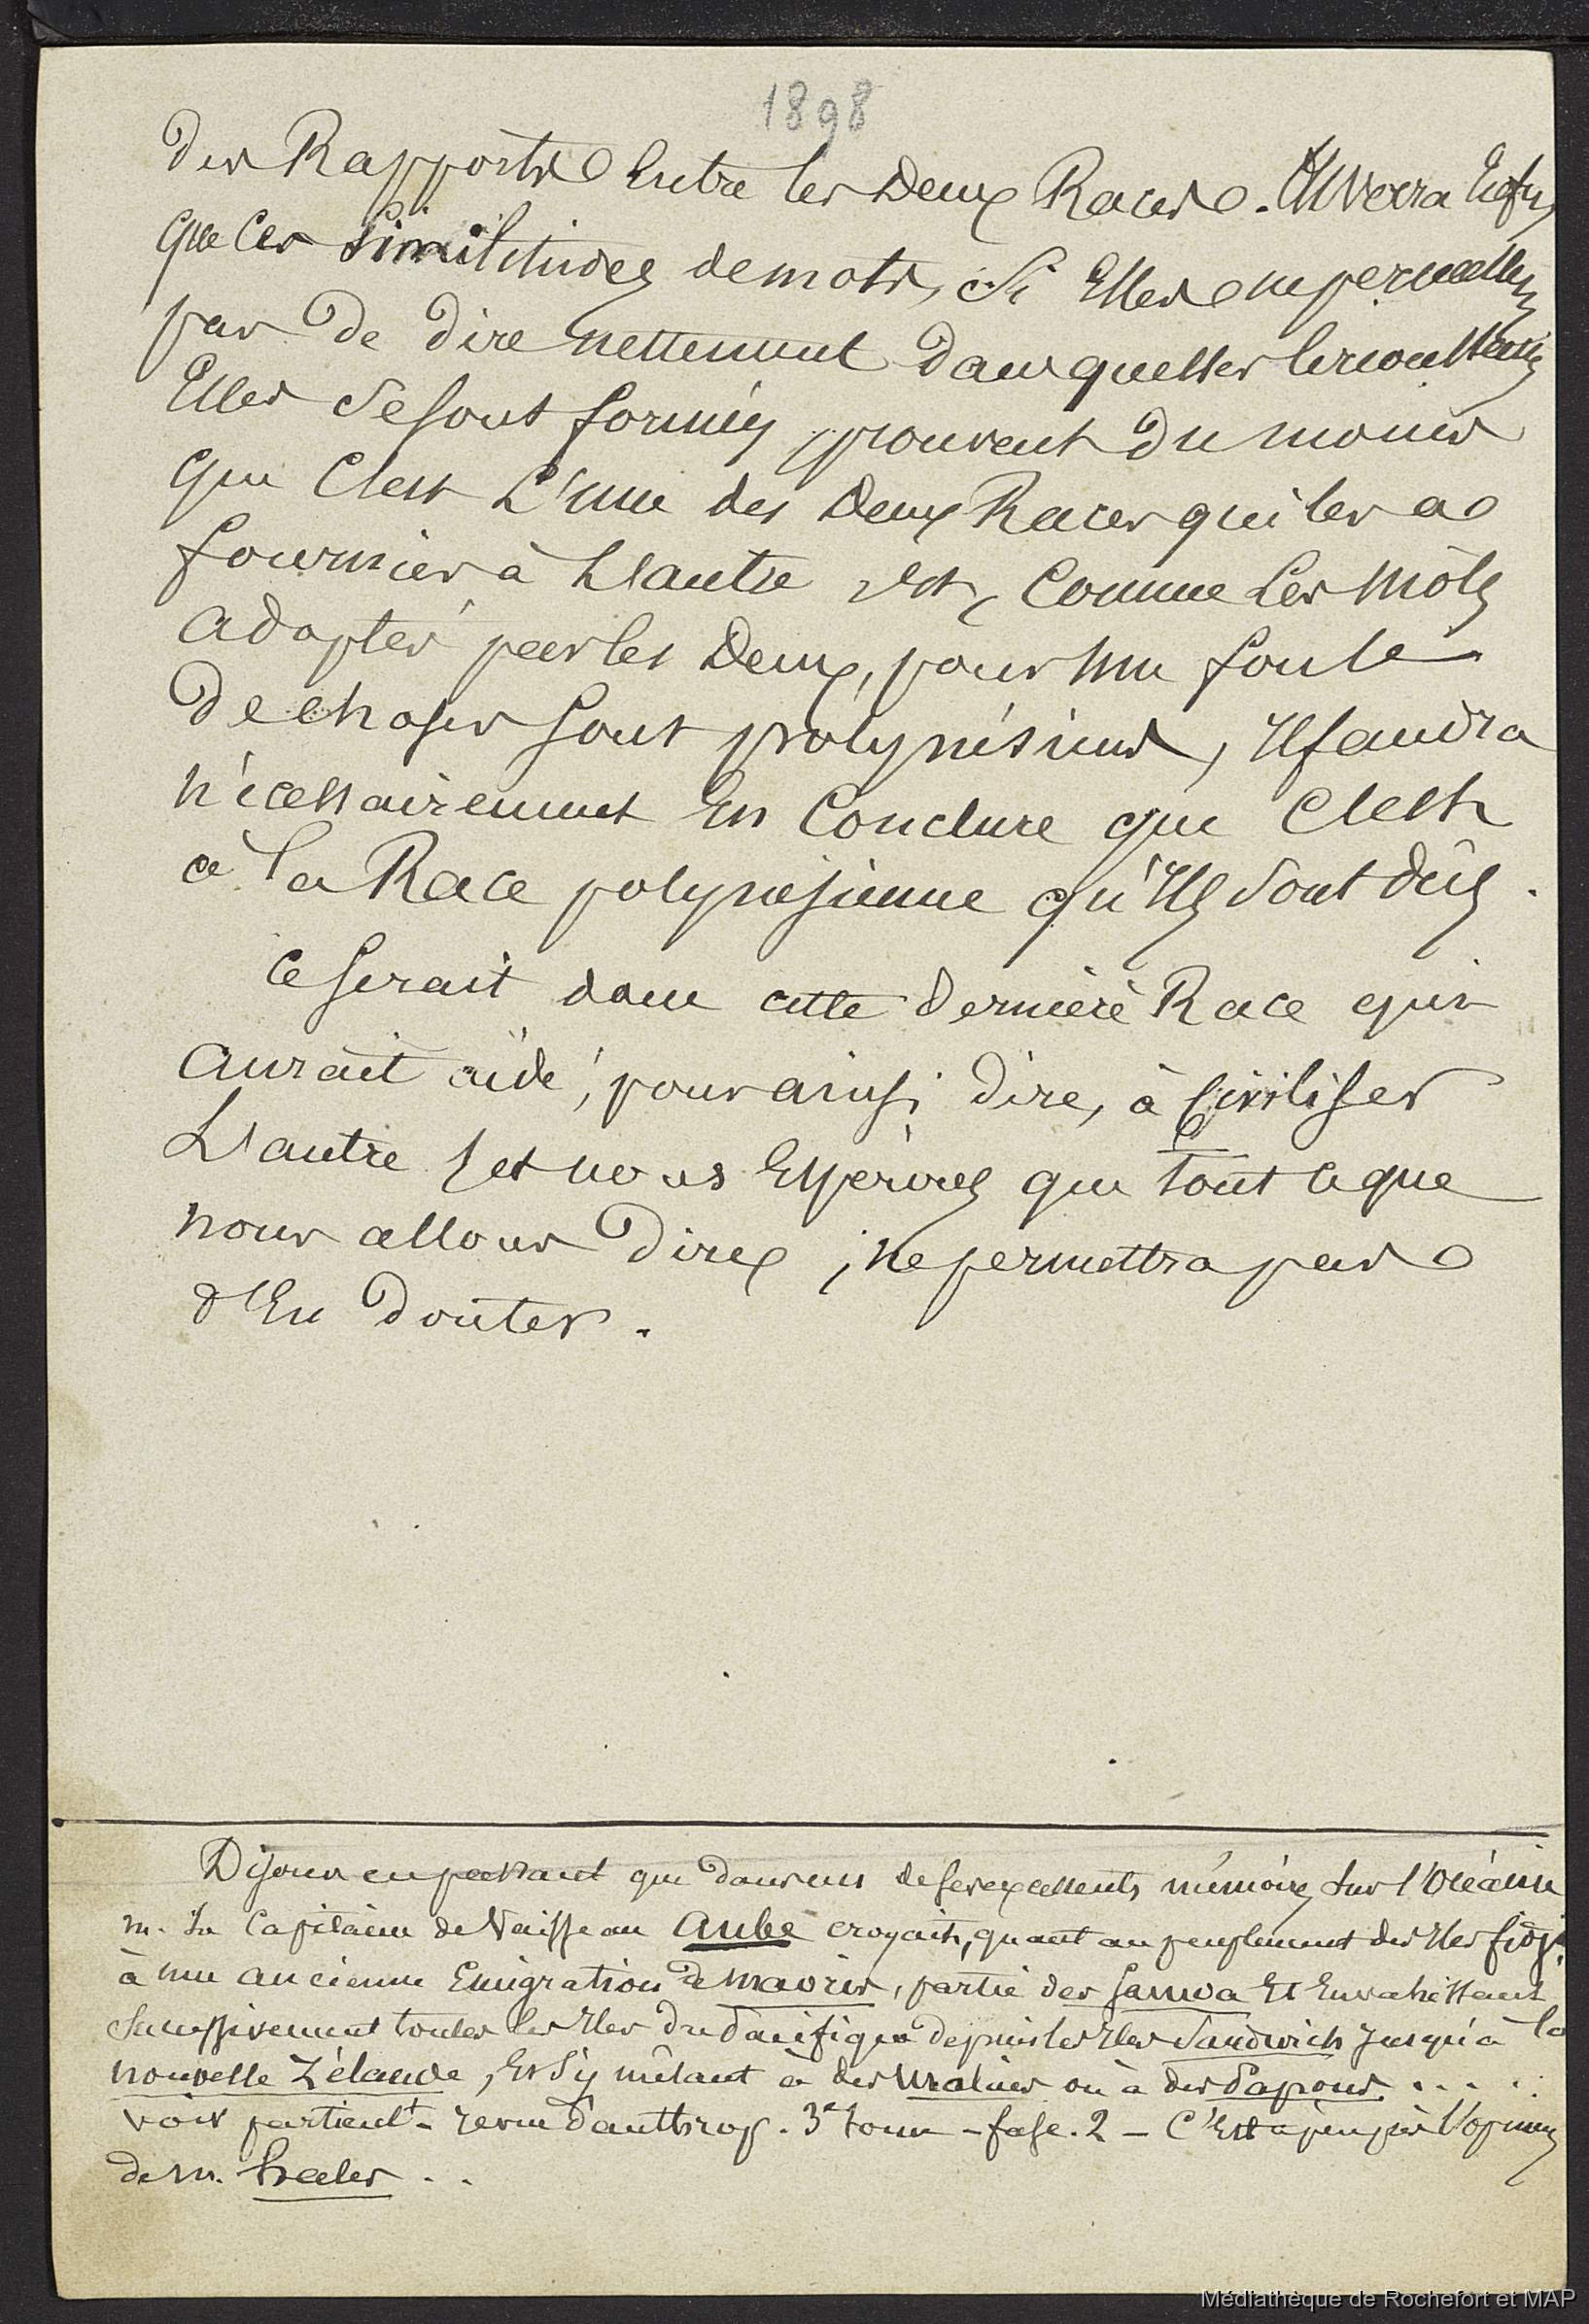 1898
des Rapports Entre les Deux Races. On verra Enfin
que Ces similitudes de mots, Si Elles ne permettent
pas De Dire nettement Dans quelles Circonstances
Elles Se sont formées, prouvent Du moins
que C'est L'une des Deux Races qui les a
fournies à L'autre ; Et, Comme Les Mots
adoptés par les Deux, pour une foule
De choses sont polynésiens, Il faudra
nécessairement En Conclure que C'est
à la Race polynésienne qu'Ils sont dûs.
Ce serait donc cette Dernière Race qui
aurait aidé, pour ainsi Dire, à Civiliser
L'autre ; et nous Espérons que tout ce que
nous allons Dire, ne permettra pas
d'En Douter.
Disons en passant que Dans un de ses excellents mémoires sur l'Océanie
m. Le Capitaine de Vaisseau Aube croyait, quant au peuplement des Iles fidji,
à une ancienne Emigration de maoris, partie des Samoa Et Envahissant
Successivement toutes les Iles du Pacifique depuis les Iles Sandwich jusqu'à la
nouvelle Zélande, Et S'y mêlant à des malais ou à des Papous . . . . .
voir particult - revue d'anthrop. 3e tome - fasc. 2 - C'Est à peu près l'opinion
de m. hales . .
Médiathèque de Rochefort et MAP